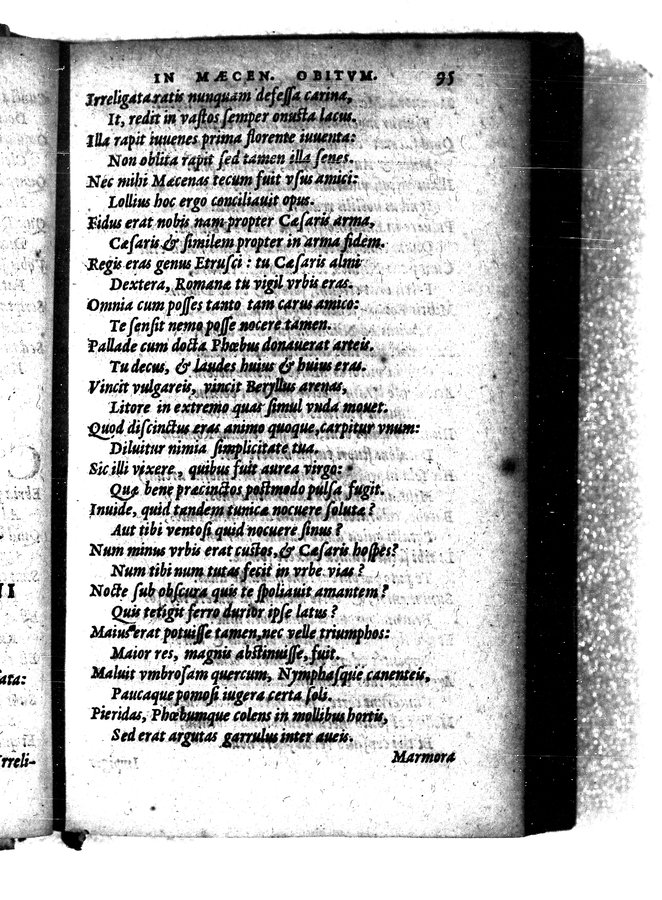 IN MÆCEN. OBITVM. 95
Irreligata ratis nunquam defeſſa carina,
It, redit in vaſtos ſemper onuſta lacus.
Illa rapit iuuenes prima florente iuuenta:
Non oblita rapit ſed tamen illa ſenes.
Nec mihi Mæcenas tecum fuit vſus amici:
Lollius hoc ergo conciliauit opus.
Fidus erat nobis nam propter Cæſaris arma,
Cæſaris & ſimilem propter in arma fidem.
Regis eras genus Etruſci: tu Cæſaris almi
Dextera, Romanæ tu vigil vrbis eras.
Omnia cum poſſes tanto tam carus amico:
Te ſenſit nemo poſſe nocere tamen.
Pallade cum docta Phœbus donauerat arteis.
Tu decus, & laudes huius & huius eras.
Vincit vulgareis, vincit Beryllus arenas,
Litore in extremo quas ſimul vnda mouet.
Quod diſcinctus eras animo quoque, carpitur vnum:
Diluitur nimia ſimplicitate tua.
Sic illi vixere, quibus fuit aurea virgo:
Quæ bene præcinctos poſtmodo pulſa fugit.
Inuide, quid tandem tunicæ nocuere ſolutæ?
Aut tibi ventoſi quid nocuere ſinus?
Num minus vrbis erat cuſtos, & Cæſaris hoſpes?
Num tibi num tutas fecit in vrbe vias?
Nocte ſub obſcura quis te ſpoliauit amantem?
Quis tetigit ferro durior ipſe latus?
Maius erat potuiſſe tamen, nec velle triumphos:
Maior res, magnis abſtinuiſſe, fuit.
Maluit vmbroſam quercum, Nymphaſque canenteis,
Paucaque pomoſi iugera certa ſoli.
Pieridas, Phœbumque colens in mollibus hortis,
Sed erat argutas garrulus inter aueis.
Marmora
II
ata:
rreli-